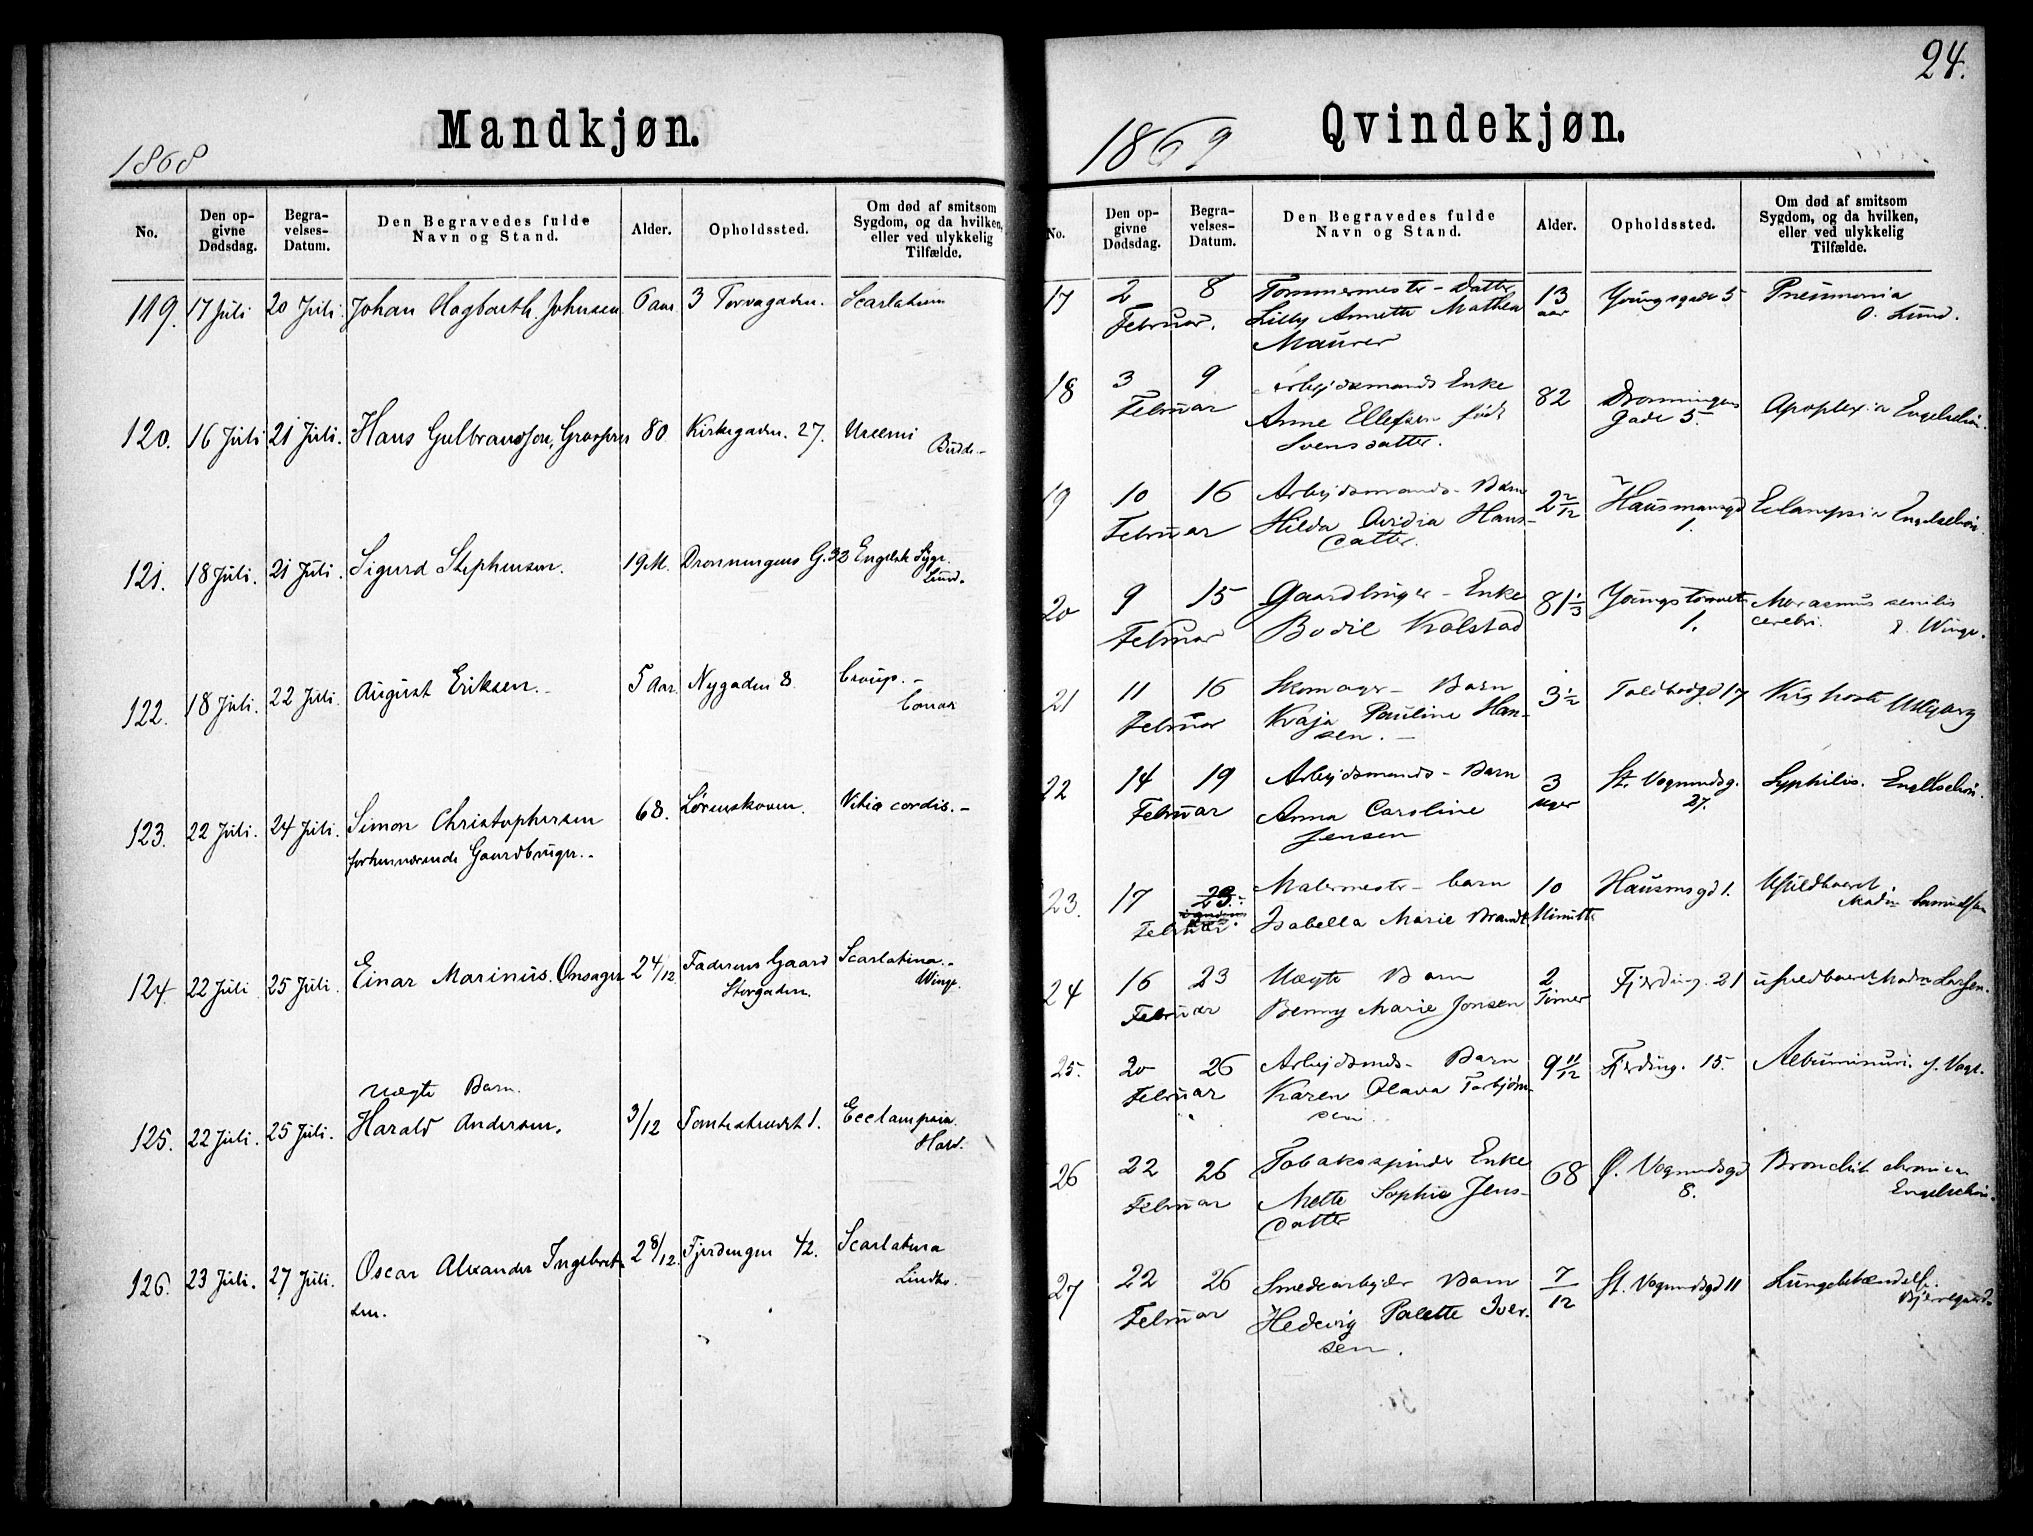 Mandkjøn.
1868
No.
Den op-
givne
Dødsdag.
Begra-
velses-
Datum.
Den Begravedes fulde
Navn og Stand.
Alder.
Opholdssted.
Om død af smitsom
Sygdom, og da hvilken,
eller ved ulykkelig
Tilfælde.
119. 17 Juli 20 Juli Johan Hagbarth Johnsen 6 aar 3 Torvegaden. Scarlatina
120. 16 Juli 21 Juli. Hans Gulbrandsen, 80 Kirkegaden. 27. Uremi
Budde.-
121. 18 Juli. 21 Juli. Sigurd Stephensen. 19 M. Dronningens G. 32 Engelsk Syge.
Lund.
122. 18 Juli. 22 Juli. August Eriksen. 5 Aar. Nygaden 8. Croup.-
123. 22 Juli. 24 Juli. Simon Christophersen 68. Lørenskoven. Vitia cordis.-
forhenværende Gaardbruger.
124. 22 Juli 25 Juli. Einar Marinus Onsager 24/12 Faderens Gaard Scarlatina.
Storgaden. Winge.
uægte Barn.
125. 22 Juli. 25 Juli. Harald Andersen. 3/12 Tomtestrædet 1. Ecclampsia
126. 23 Juli. 27 Juli. Oscar Alexander Ingebret- 2 8/12. Fjerdingen 42. Scarlatina
sen. Lindbo.
24.
1869
Qvindekjøn.
No.
Den op-
givne
Dødsdag.
Begra-
velses-
Datum.
Den Begravedes fulde
Navn og Stand.
Alder.
Opholdssted.
Om død af smitsom
Sygdom, og da hvilken,
eller ved ulykkelig
Tilfælde.
17 2 8 Tømmermester-Datter 13 Youngsgade 5 Pneumonia
Februar. Lilly Annette Mathea aar O. Lund.
Maurer
18 3 9 Arbejdsmands Enke 82 Dronningens Apoplexia Engelschiøn.
Februar Anne Ellefsen født Gade 5.
Svensdatter.
19 10 16 Arbejdsmands-Barn 2 2/12 Hausmansgd Eclampsia Engelschiøn.
Februar Hilda Ovidia Hans- 1.
datter.
20 9 15 Gaardbruger-Enke 81 1/3 Youngstorvet Marasmus senilis
Februar Bodil Kolstad 1. cerebri. Winge.
21 11 16 Skomager-Barn 3 1/2 Toldbodgd. 17 Kighoste Utbjørg
Februar Kaja Pauline Han-
sen.-
22 14 19 Arbejdsmands-Barn 3 St. Vognmdsg. Syphilis. Engelschiøn.
Februar Anna Caroline uger 27.
Jensen
23. 17 23. Malermester-barn 10 Hausmsgd 1. Ufuldbaaret.
Februar Isabella Marie Brandt Minutter Madm Samuelsen
24 16 23 Uægte Barn 2 Fjerding. 21 ufuldbaaret Madm Larsen.
Februar Benny Marie Jonsen Timer
25. 20 26 Arbejdsmds-Barn 9 11/12 Fjerding. 15. Albuminuri. J. Vogt.
Februar Karen Olava Torbjørn-
sen.
26 22 26 Tobaksspinder Enke 68 Ø. Vognmdsgd Bronchit chronica
Februar Mette Sophie Jens- 8. Engelschiøn.
datter
27 22 26 Smedearbejder Barn 7/12 St. Vognmdsgd 11 Lungebetændelse.
Februar Hedevig Palette Iver- Bjerregaard
sen.